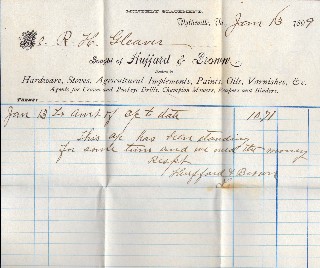 MONTHLY STATEMENT.
Wytheville, Va., Jan 13 1899
R. H. Gleaves
Bought of Huffard & Brown
Dealers in
Hardware, Stoves, Agricultural Implements, Paints, Oils, Varnishes, &c.
Agents for Crown and Peckey Drills, Champion Mowers, Reapers and Binders.
TERMS:
Jan 13 To amt of a/c to date 10.71
This a/c has been standing
for some time and we need the money
Respt
Huffard & Brown